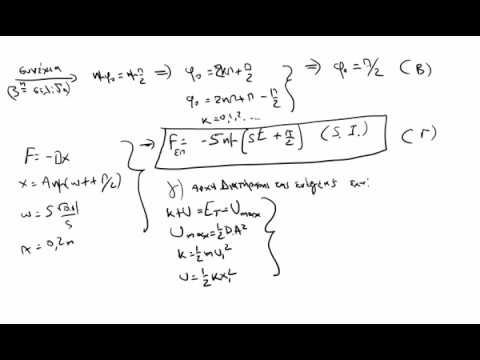 συνέχεια
(3η σελίδα)
ημφ₀ = ημ π/2 ⟹ φ₀ = 2κπ + π/2
φ₀ = 2κπ + π - π/2
κ = 0, 1, 2, ...
⟹ φ₀ = π/2 (Β)
F = -Dx
x = Aημ(ωt + π/2)
ω = 5 rad/s
A = 0,2m
⟹ Fεπ = -5ημ(5t + π/2) (S.I.) (Γ)
γ) Αρχή Διατήρησης της ενέργειας
K+U = E_T = U_max
U_max = ½DA²
K = ½mυ₁²
U = ½Kx₁²